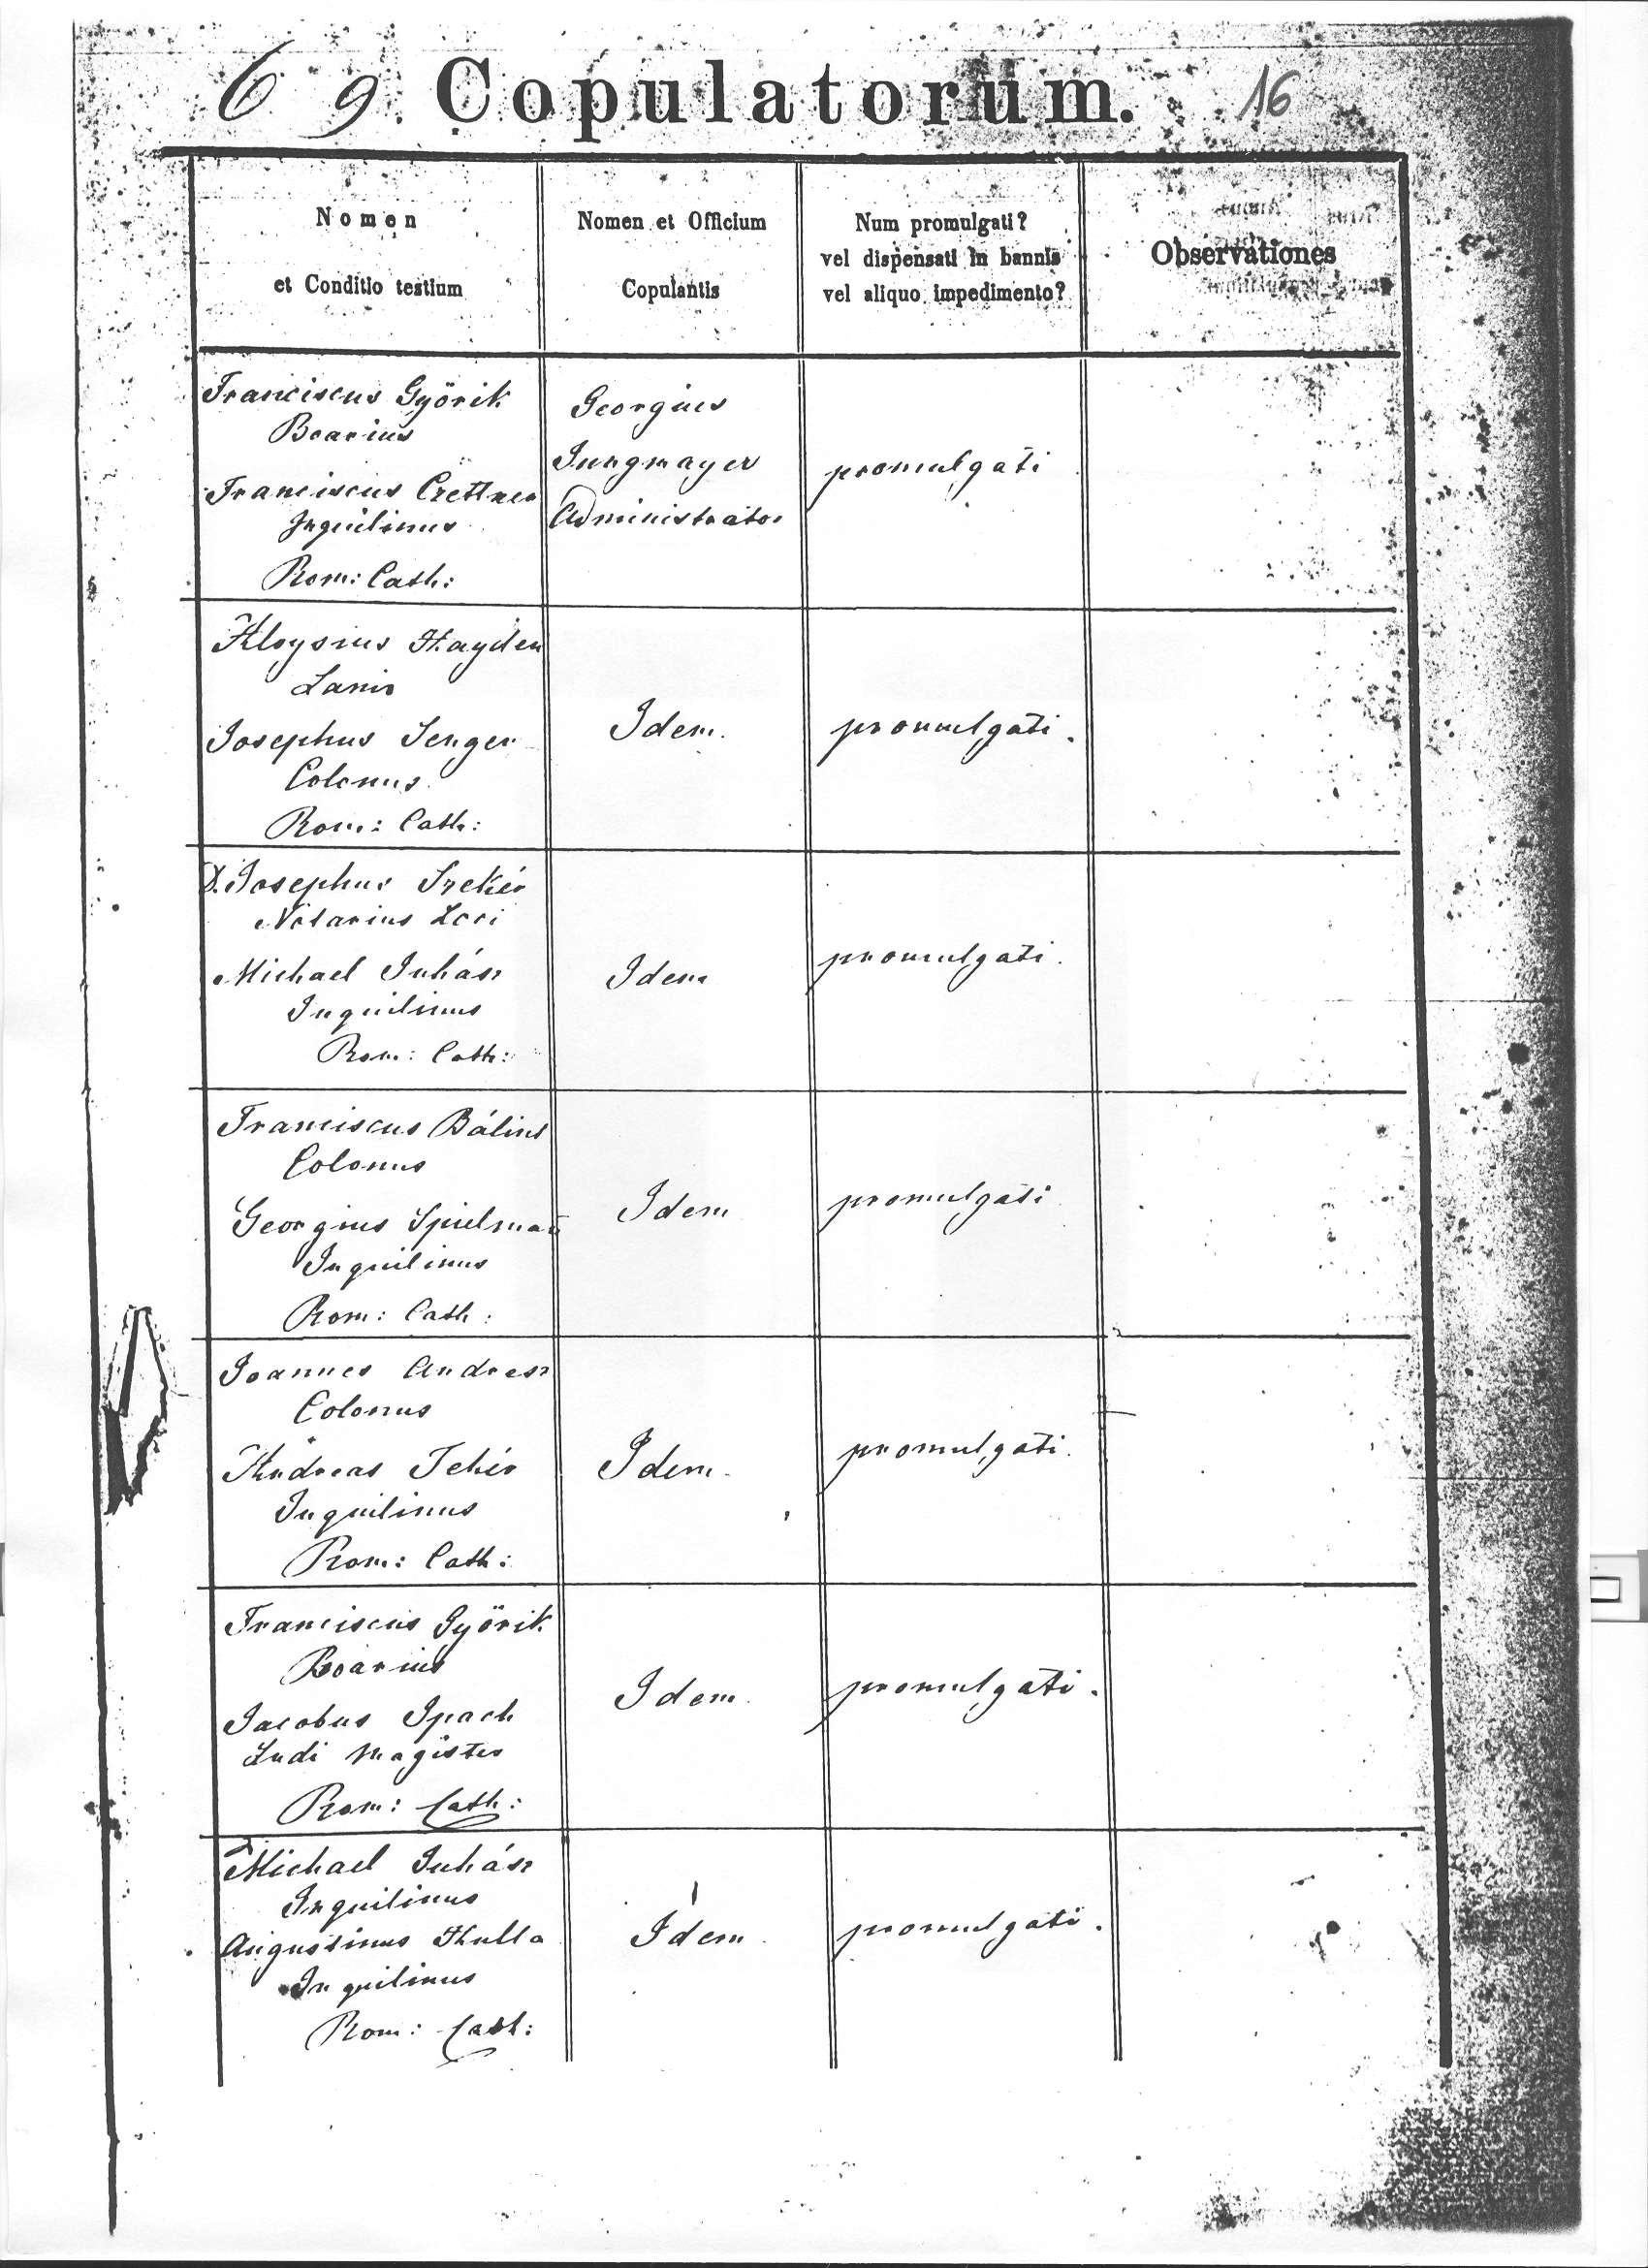 69. Copulatorum. 16
Nomen
et Conditio testium
Nomen et Officium
Copulantis
Num promulgati?
vel dispensati in bannis
vel aliquo impedimento?
Observationes
Franciscus Györik
Boarius
Franciscus
Inquilinus
Rom: Cath:
Georgius
Jungmayer
Administrator
promulgati
Aloysius Hayden
Lanio
Josephus Senger
Colonus
Rom: Cath:
Idem.
promulgati.
D. Josephus Szekér
Notarius Loci
Michael Juhász
Inquilinus
Rom: Cath:
Idem
promulgati.
Franciscus Bálint
Colonus
Georgius Spielman
Inquilinus
Rom: Cath:
Idem
promulgati
Joannes Andresz
Colonus
Andreas Fehér
Inquilinus
Rom: Cath:
Idem.
promulgati.
Franciscus Györik
Boarius
Jacobus Spach
Ludi Magister
Rom: Cath:
Idem.
promulgati.
Michael Juhász
Inquilinus
Augustinus Kulla
Inquilinus
Rom: Cath:
Idem.
promulgati.